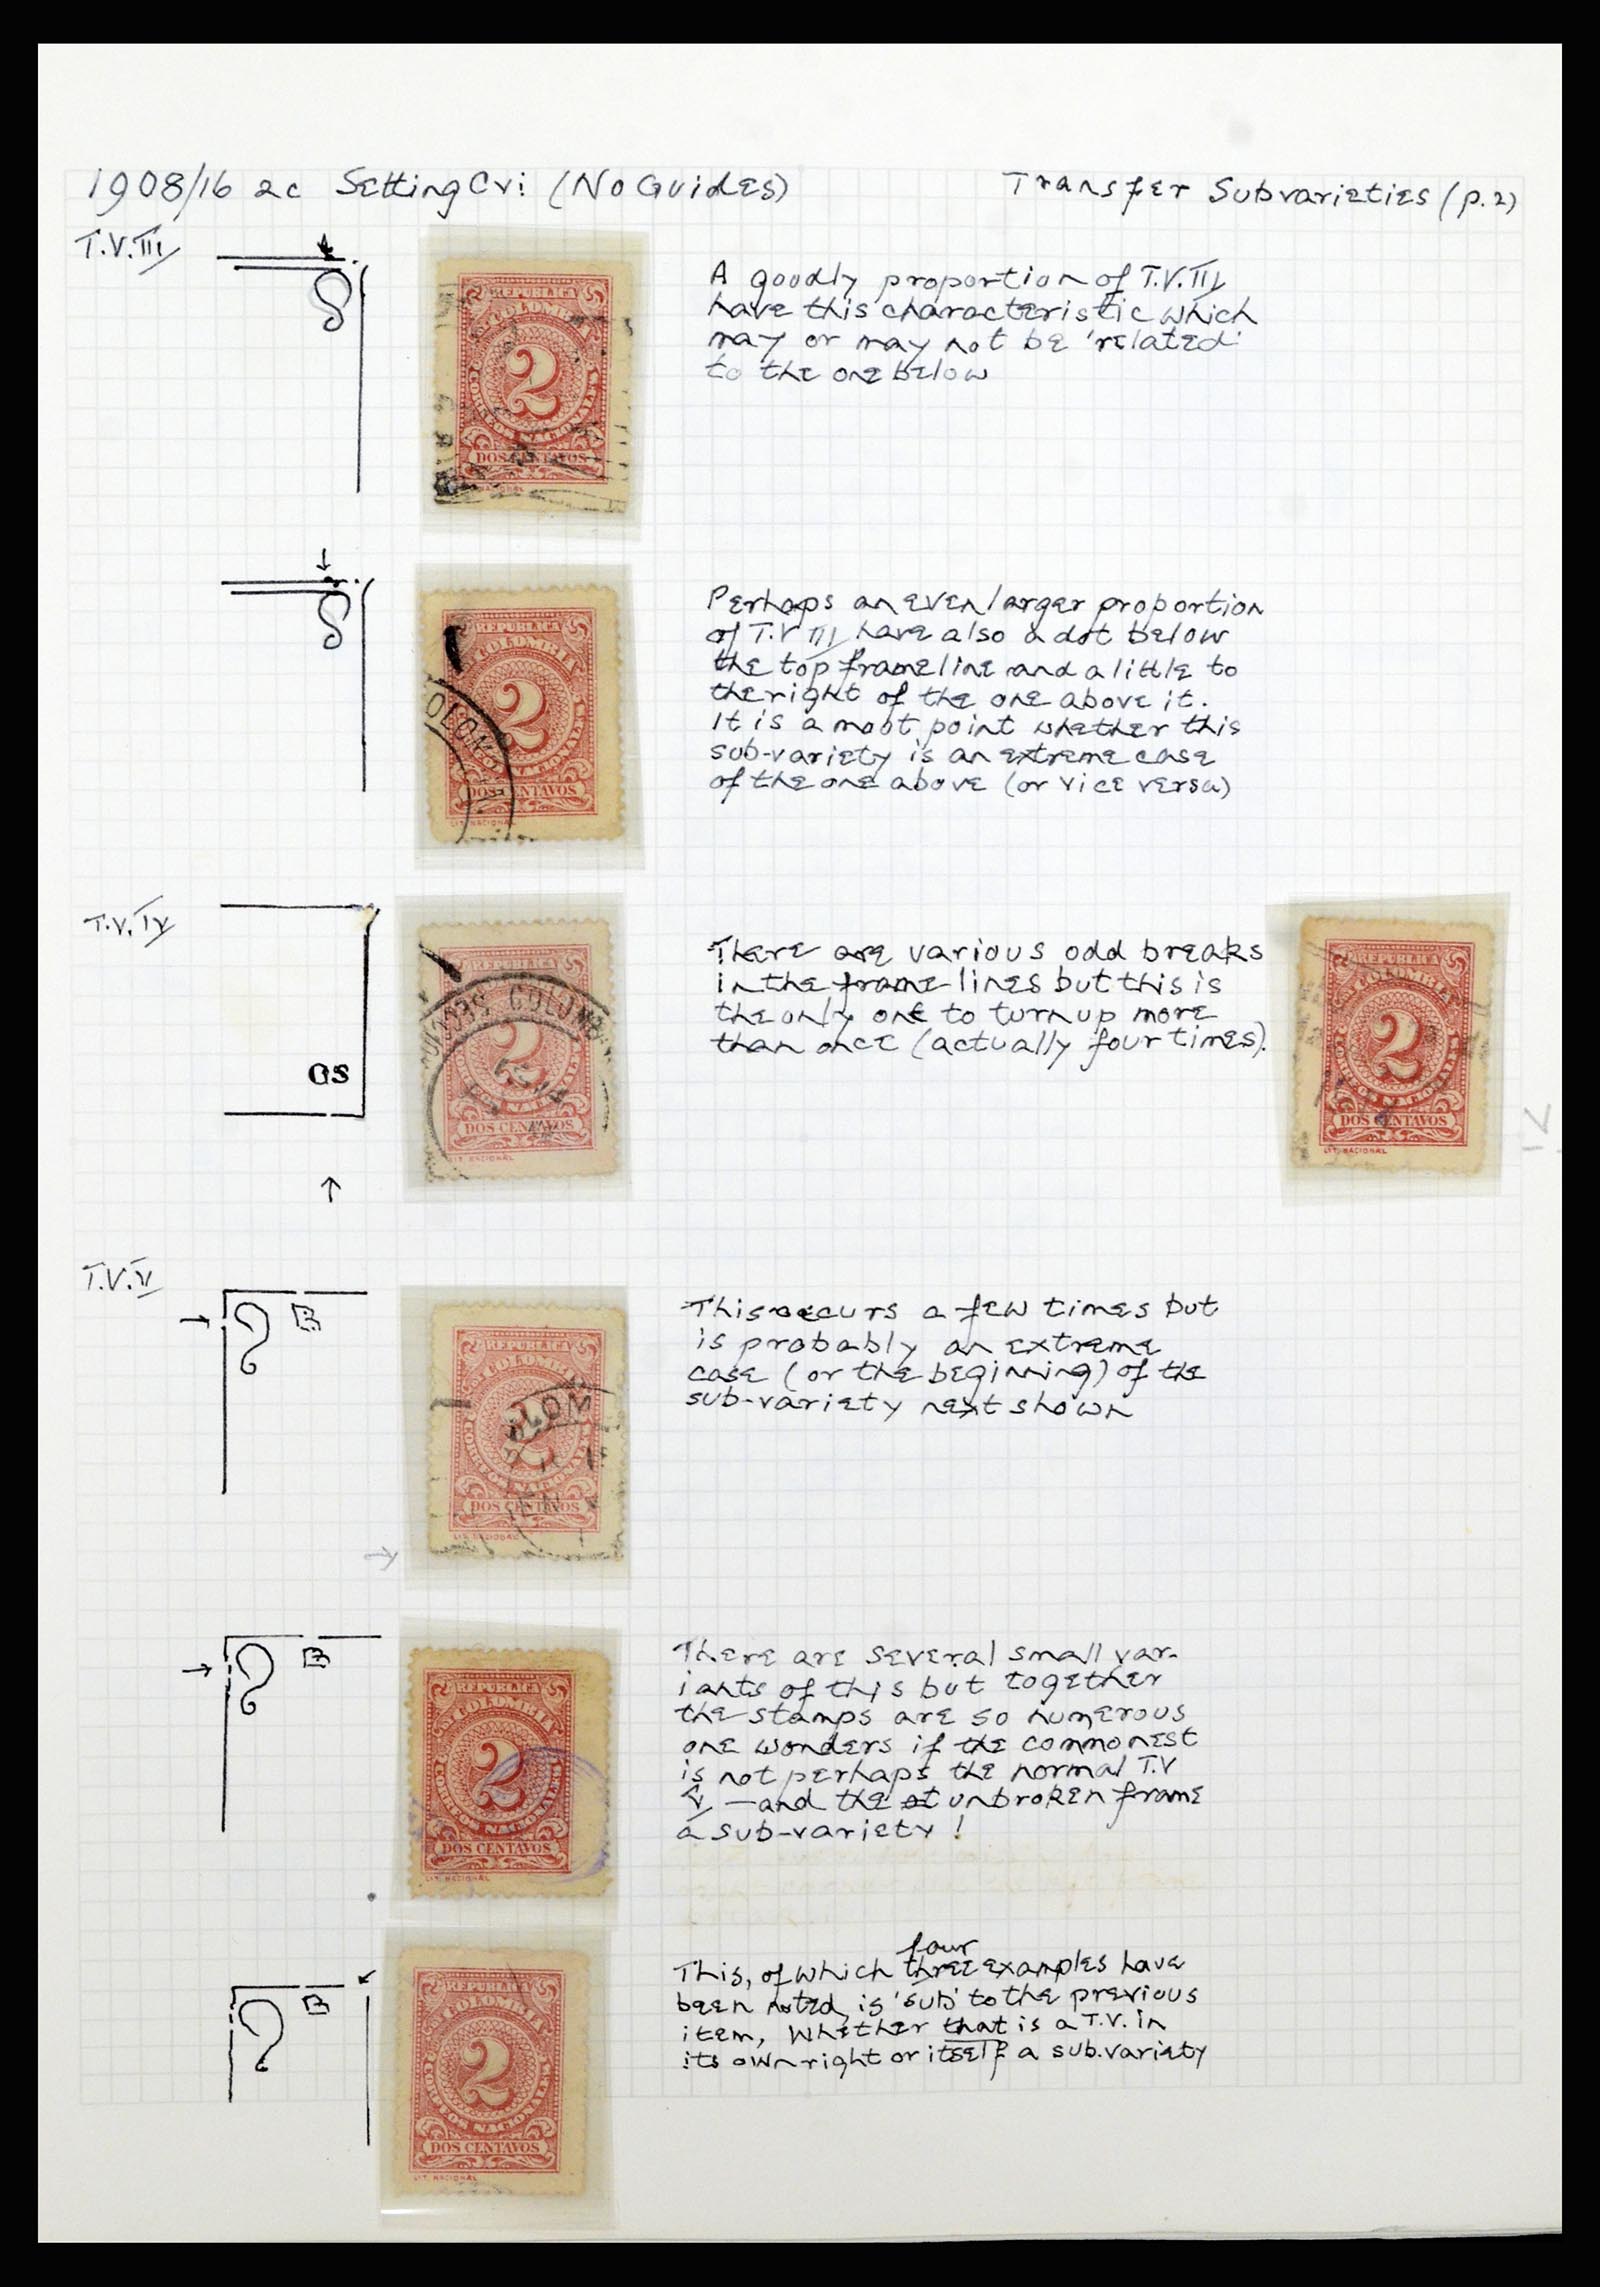 1908/16 2c Setting Cvi (No Guides)
Transfer Subvarieties (p.2)
T.V. III
A goodly proportion of T.V. III
have this characteristic which
may or may not be 'related'
to the one below
REPUBLICA
COLOMBIA
2
CORREOS NACIONALES
DOS CENTAVOS
NACIONAL
Perhaps an even larger proportion
of T.V III have also a dot below
the top frame line and a little to
the right of the one above it.
It is a moot point whether this
sub-variety is an extreme case
of the one above (or vice versa)
REPUBLICA
COLOMBIA
2
DOS CENTAVOS
LIT. NACIONAL
T.V. IV
OS
There are various odd breaks
in the frame lines but this is
the only one to turn up more
than once (actually four times).
COLOMB
2
DOS CENTAVOS
LIT. NACIONAL
COLOMBIA
2
DOS CENTAVOS
LIT. NACIONAL
T.V. V
This occurs a few times but
is probably an extreme
case (or the beginning) of the
sub-variety next shown
REPUBLICA
COLOMBIA
OLOM
2
DOS CENTAVOS
LIT. NACIONAL
There are several small var-
iants of this but together
the stamps are so numerous
one wonders if the commonest
is not perhaps the normal T.V
V — and the unbroken frame
a sub-variety!
REPUBLICA
COLOMBIA
2
CORREOS NACIONALES
DOS CENTAVOS
LIT. NACIONAL
four
This, of which three examples have
been noted, is 'sub' to the previous
item, whether that is a T.V. in
its own right or itself a sub.variety
REPUBLICA
COLOMBIA
2
CORREOS NACIONALES
DOS CENTAVOS
LIT. NACIONAL